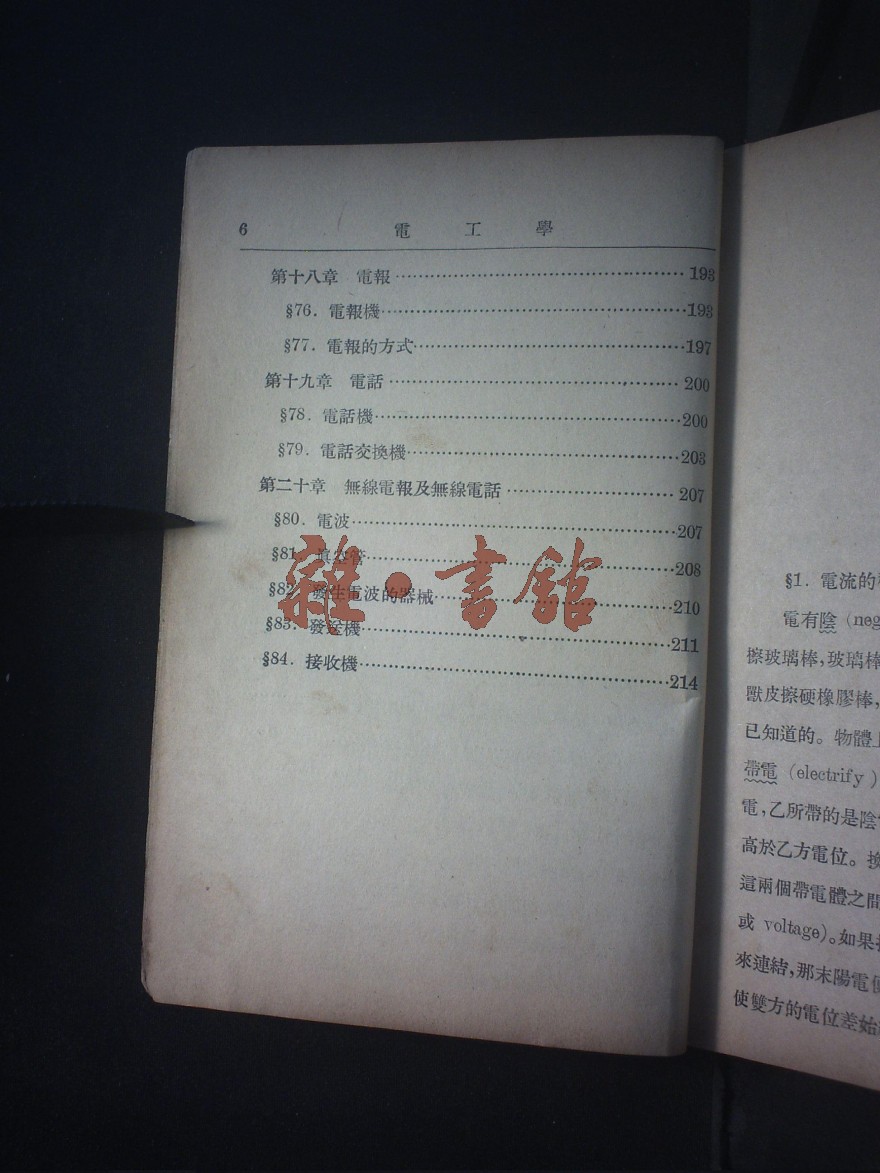 6 電工學
第十八章 電報 193
§76. 電報機 193
§77. 電報的方式 197
第十九章 電話 200
§78. 電話機 200
§79. 電話交換機 203
第二十章 無線電報及無線電話 207
§80. 電波 207
§81. 眞空管 208
§82. 發生電波的器械 210
§83. 發送機 211
§84. 接收機 214
雜·書館
§1. 電流的
電有陰 (neg
擦玻璃棒,玻璃棒
獸皮擦硬橡膠棒,
已知道的。物體上
帶電 (electrify)
電,乙所帶的是陰
高於乙方電位。換
這兩個帶電體之間
或 voltage)。如果
來連結,那末陽電
使雙方的電位差始